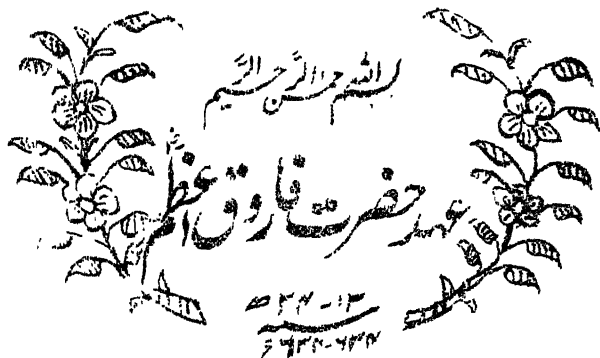 بسم اللہ الرحمن الرحیم
عہد حضرت فاروق اعظمؓ
۱۳-۲۴ھ
۶۳۴-۶۴۴ء